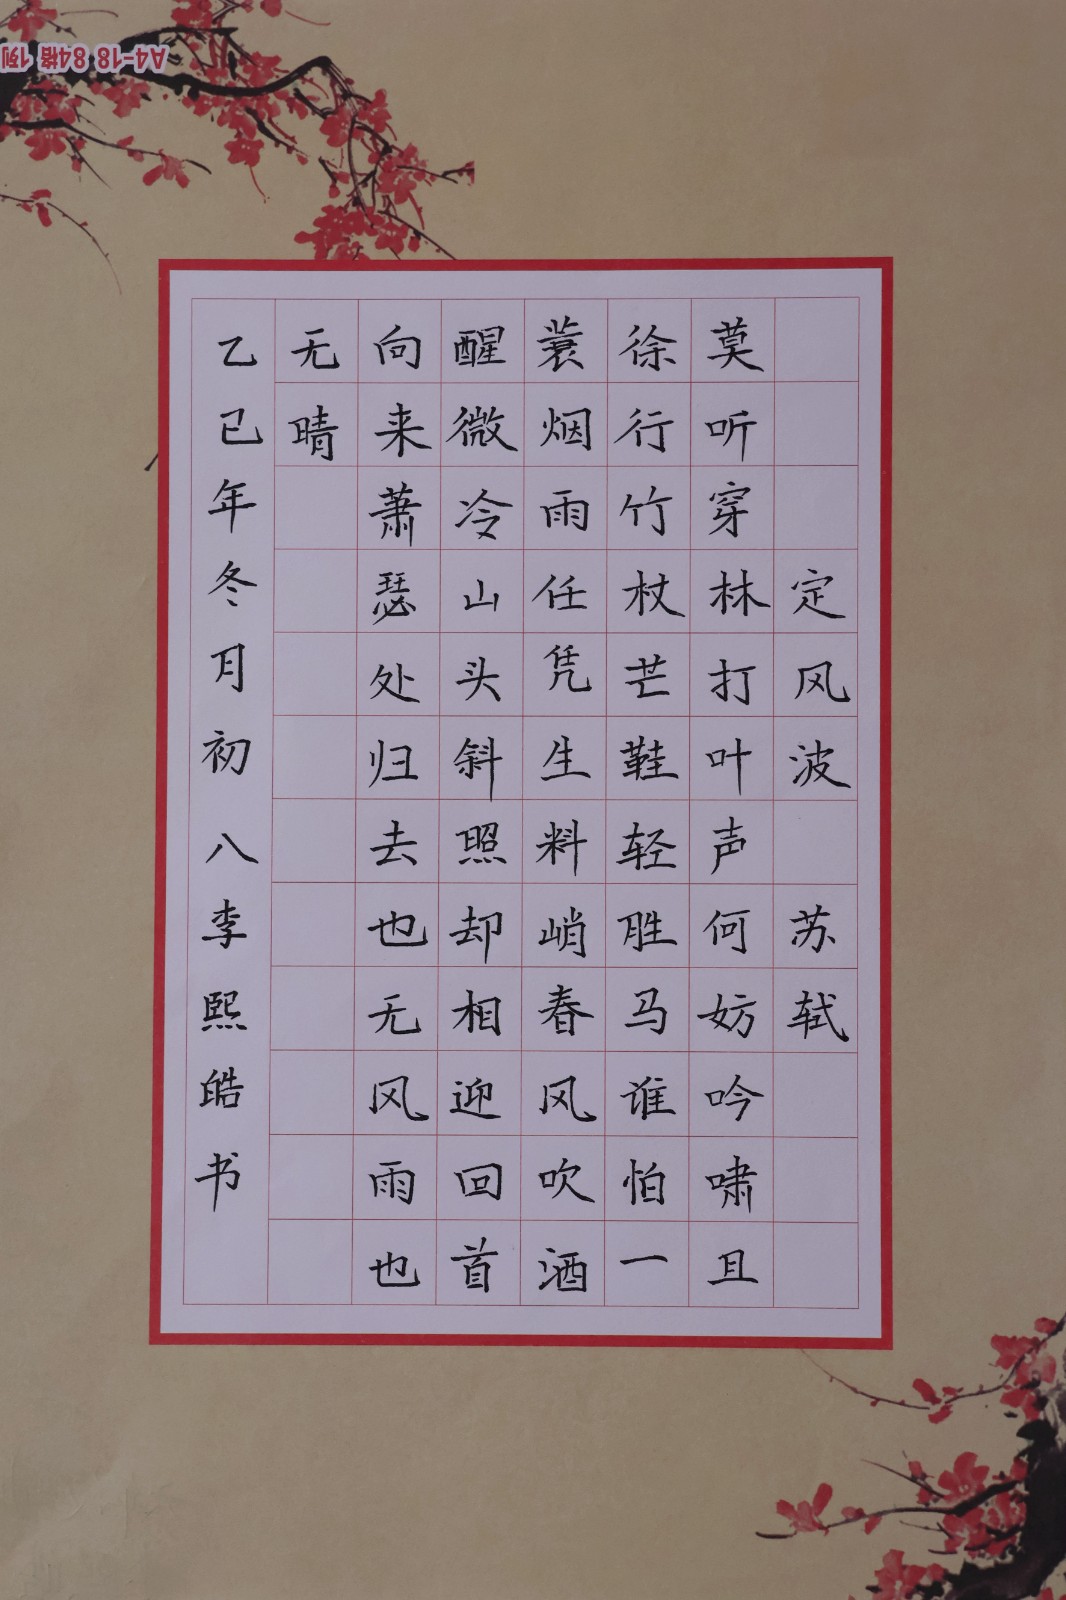 定风波 苏轼
莫听穿林打叶声何妨吟啸且
徐行竹杖芒鞋轻胜马谁怕一
蓑烟雨任凭生料峭春风吹酒
醒微冷山头斜照却相迎回首
向来萧瑟处归去也无风雨也
无晴
乙已年冬月初八李熙皓书
A4-18 84格 1列